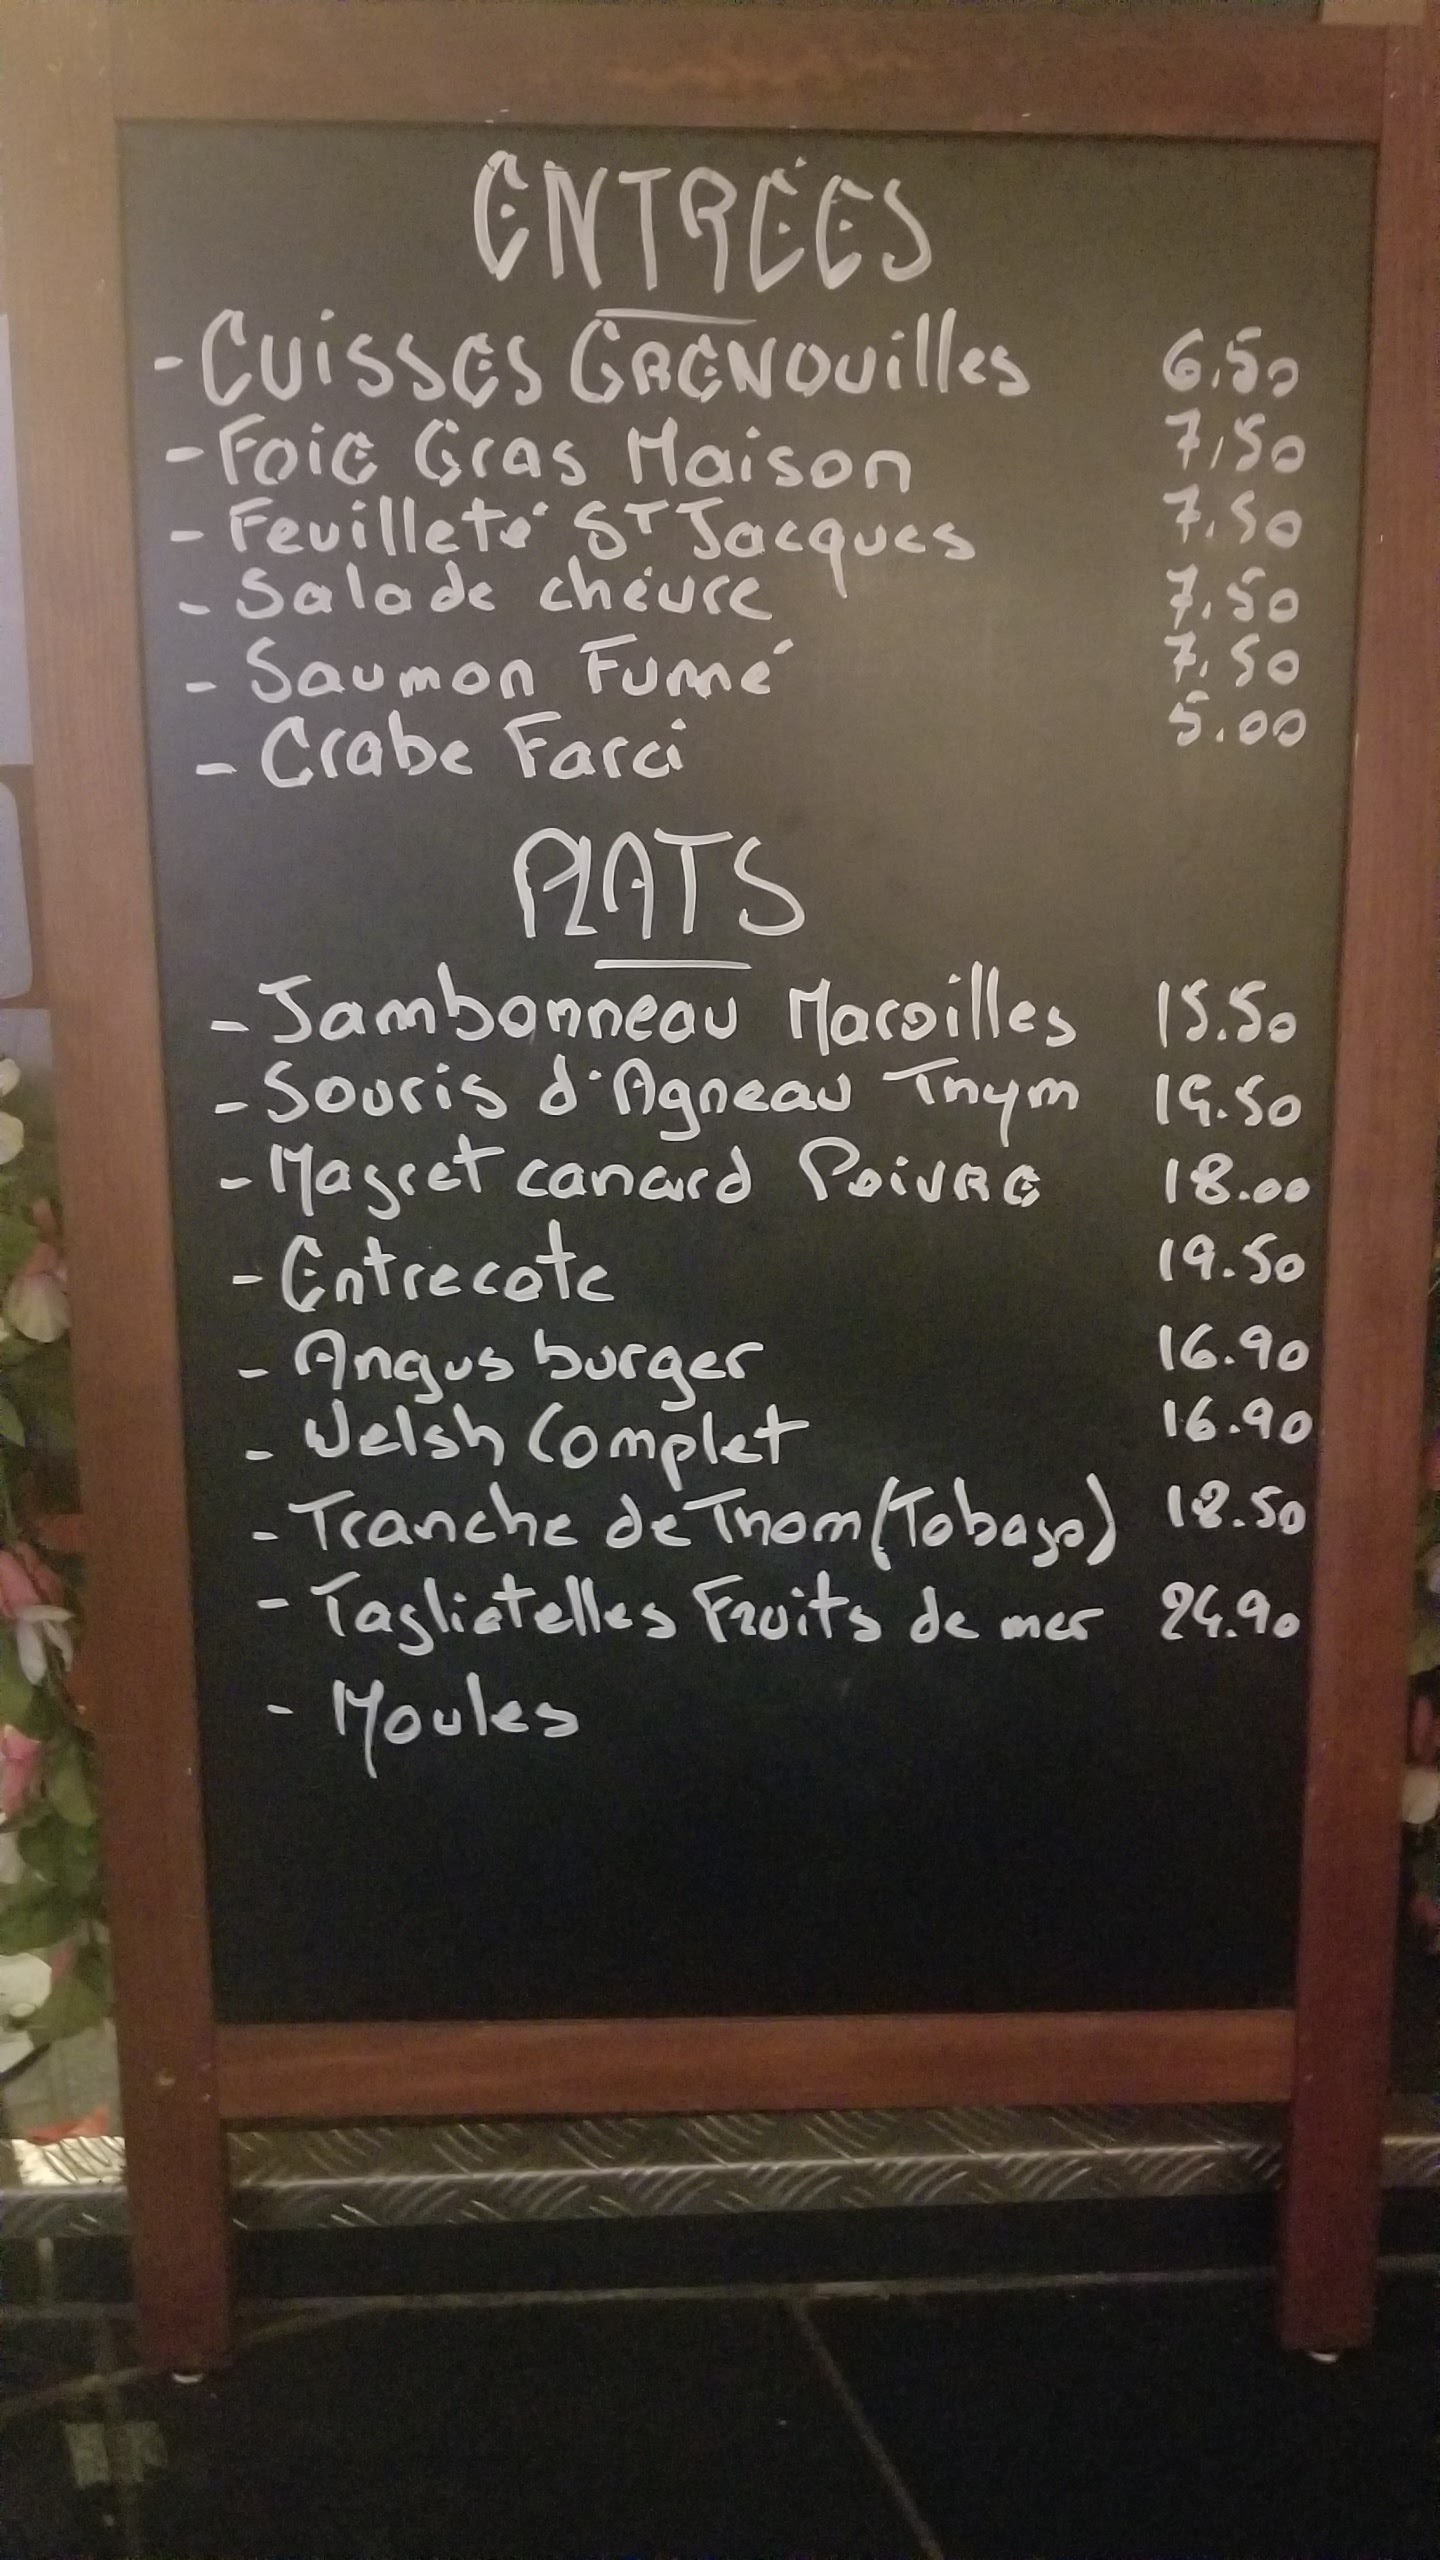 ENTRÉES
- CUISSES GRENOUilles 6,50
- Foie Gras Maison 7,50
- Feuilleté ST Jacques 7.50
- Salade chèvre 7.50
- Saumon Fumé 7.50
- Crabe Farci 5.00
PLATS
- Jambonneau Maroilles 15.50
- Souris d'Agneau Thym 19.50
- Magret canard POIVRE 18.00
- Entrecote 19.50
- Angus burger 16.90
- Welsh Complet 16.90
- Tranche de Thom (Tobago) 18.50
- Tagliatelles Fruits de mer 24.90
- Moules